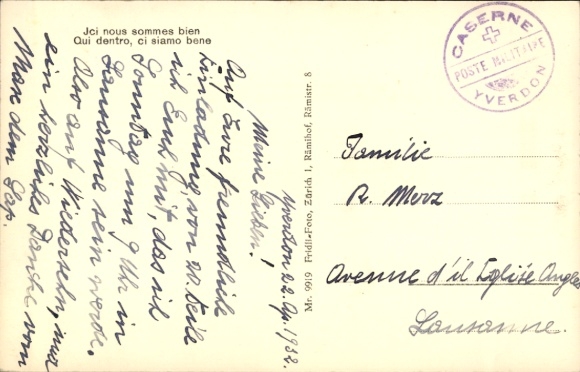 Jci nous sommes bien
Qui dentro, ci siamo bene
Yverdon 22. Ap. 1932.
Meine Lieben!
Auf Eure freundlich
Einladung von 20. teile
ich Euch mit, das ich
Sonntag um 9 Uhr in
Lausanne sein werde.
Also auf Wiedersehn, und
ein herzliches Danke von
Max dem
Mr. 9919 Fridli-Foto, Zürich 1, Rämihof, Rämistr. 8
CASERNE
POSTE MILITAIRE
YVERDON
Familie
R. Merz
Avenue d'il Eglise Anglai
Lausanne.